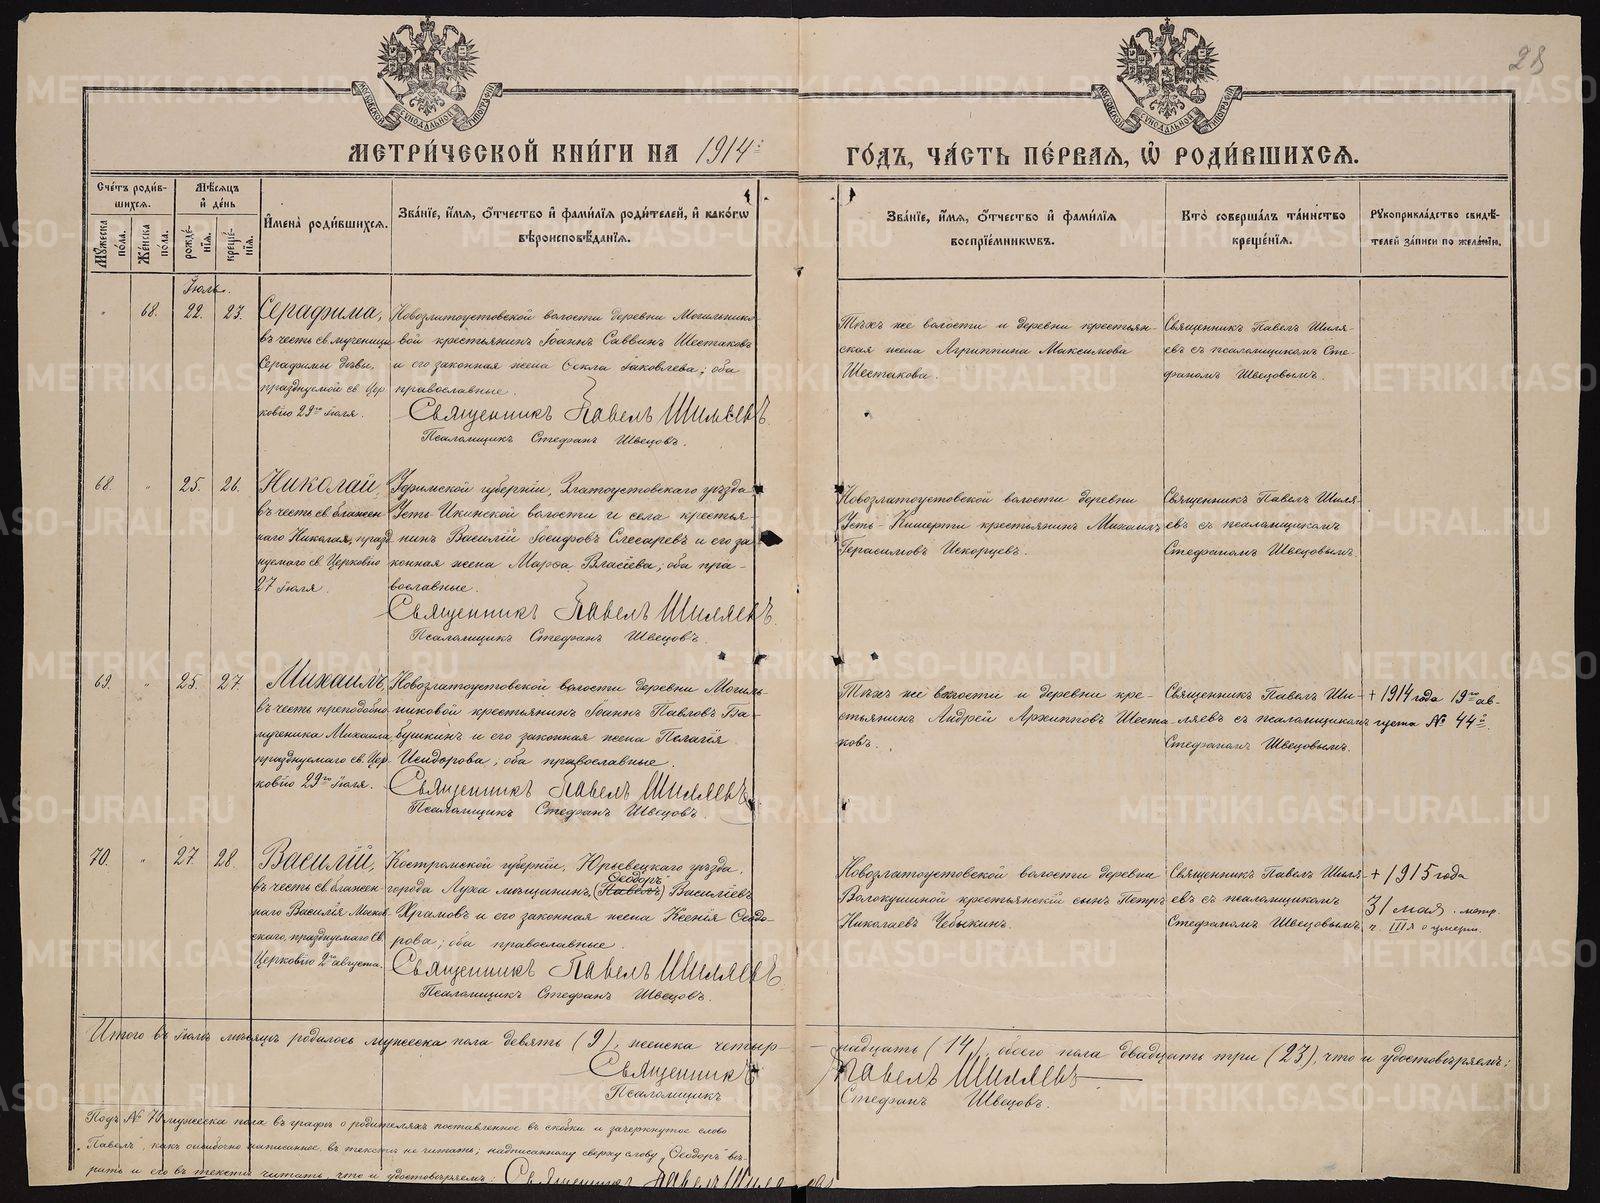 28
МОСКОВСКОЙ СѴНОДАЛЬНОЙ ТИПОГРАФІИ
МОСКОВСКОЙ СѴНОДАЛЬНОЙ ТИПОГРАФІИ
МЕТРИ́ЧЕСКОЙ КНИ́ГИ НА 1914й
ГО́ДЪ, ЧА́СТЬ ПЕ́РВАѦ, Ѡ҆ РОДИ́ВШИХСѦ.
Сче́тъ роди́в-
шихсѧ.
Мꙋ́жеска по́ла.
Же́нска по́ла.
Мѣ́сѧцъ
и҆ де́нь
рожде́-
нїѧ.
креще́-
нїѧ.
И҆мена̀ роди́вшихсѧ.
Зва́нїе, и҆́мѧ, ѻ҆́тчество и҆ фами́лїѧ роди́телей, и҆ како́гѡ
вѣроисповѣ́данїѧ.
Зва́нїе, и҆́мѧ, ѻ҆́тчество и҆ фами́лїѧ
воспрїе́мникѡвъ.
Кто̀ соверша́лъ та́инство
креще́нїѧ.
Рꙋкоприкла́дство свидѣ́-
телей за́писи по жела́нїю.
Іюль.
" 68. 22. 23.
Серафима,
въ честь св. мученицы
Серафимы девы,
празднуемой св. Цер
ковію 29го Іюля.
Новозлатоустовской волости деревни Могильнико
вой крестьянинъ Іоаннъ Саввинъ Шестаковъ
и его законная жена Ѳекла Іаковлева; оба
православные.
Священникъ Павелъ Шиляевъ
Псаломщикъ Стефанъ Швецовъ.
Тѣхъ же волости и деревни крестьян-
ская жена Агриппина Максимова
Шестакова.
Священникъ Павелъ Шиля-
евъ съ псаломщикомъ Сте-
фаномъ Швецовымъ.
68. " 25. 26.
Николай,
въ честь св. блажен
наго Николая, празд
нуемаго св. Церковію
27 Іюля.
Уфимской губерніи, Златоустовскаго уѣзда
Усть Икинской волости и села крестья-
нинъ Василій Іосифовъ Слесаревъ и его за
конная жена Марѳа Власіева; оба пра-
вославные.
Священникъ Павелъ Шиляевъ.
Псаломщикъ Стефанъ Швецовъ.
Новозлатоустовской волости деревни
Усть-Кишерти крестьянинъ Михаилъ
Герасимовъ Искорцевъ.
Священникъ Павелъ Шиля-
евъ съ псаломщикомъ
Стефаномъ Швецовымъ.
69. " 25. 27.
Михаилъ,
въ честь преподобно
мученика Михаила
празднуемаго св. Цер
ковію 29го Іюля.
Новозлатоустовской волости деревни Могиль-
никовой крестьянинъ Іоаннъ Павловъ Ба-
бушкинъ и его законная жена Пелагія
Исидорова; оба православные.
Священникъ Павелъ Шиляевъ
Псаломщикъ Стефанъ Швецовъ.
Тѣхъ же волости и деревни кре-
стьянинъ Андрей Архипповъ Шеста-
ковъ.
Священникъ Павелъ Ши-
ляевъ съ псаломщикомъ
Стефаномъ Швецовымъ.
+ 1914 года 19го ав-
густа № 44й.
70. " 27. 28.
Василій,
въ честь св. блажен
наго Василія Москов
скаго, празднуемаго Св.
Церковію 2го августа.
Костромской губерніи, Юрьевецкаго уѣзда,
Ѳеодоръ
города Луха мѣщанинъ (Павелъ) Василіевъ
Храмовъ и его законная жена Ксенія Ѳеодо-
рова; оба православные.
Священникъ Павелъ Шиляевъ
Псаломщикъ Стефанъ Швецовъ.
Новозлатоустовской волости деревни
Волокушиной крестьянскій сынъ Петръ
Николаевъ Чебыкинъ.
Священникъ Павелъ Шиля
евъ съ псаломщикомъ
Стефаномъ Швецовымъ.
+ 1915 года
31 мая. метр.
ч. IIIя о умерш.
Итого въ Іюлѣ мѣсяцѣ родилось мужеска пола девять (9), женска четыр-
надцать (14), обоего пола двадцать три (23), что и удостовѣряемъ:
Священникъ Павелъ Шиляевъ
Псаломщикъ Стефанъ Швецовъ.
Подъ № 70 мужеска пола въ графѣ о родителяхъ поставленное въ скобки и зачеркнутое слово
"Павелъ", какъ ошибочно написанное въ текстѣ не читать; надписанному сверху слову "Ѳеодоръ" вѣ-
рить и его въ текстѣ читать, что и удостовѣряемъ: Священникъ Павелъ Шиляевъ
METRIKI.GASO-URAL.RU